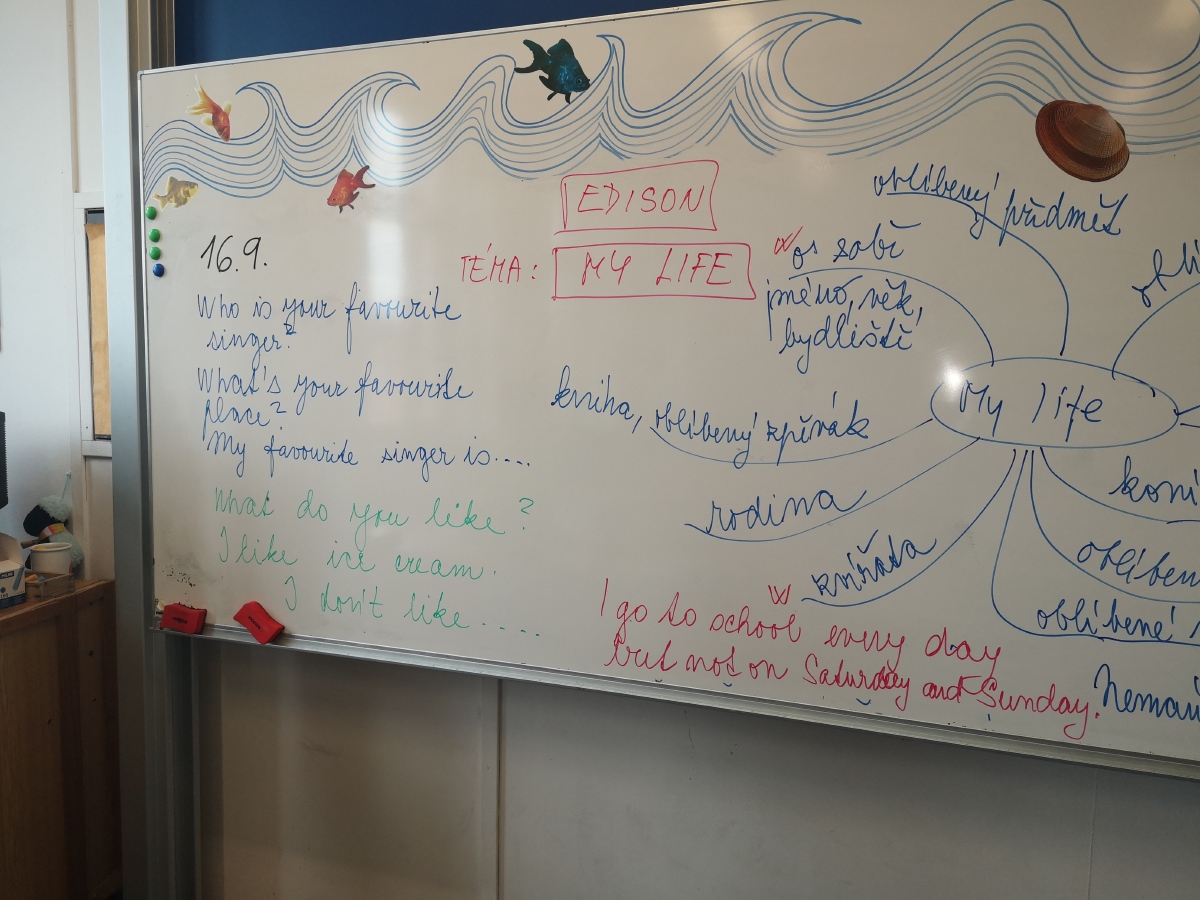 EDISON
TÉMA: MY LIFE
16.9.
Who is your favourite
singer?
What's your favourite
place?
My favourite singer is....
What do you like?
I like ice cream.
I don't like .....
oblíbený předmět
o sobě
jméno, věk,
bydliště
My life
kniha, oblíbený zpěvák
rodina
zvířata
koní
oblíben
oblíbené
I go to school every day
but not on Saturday and Sunday.